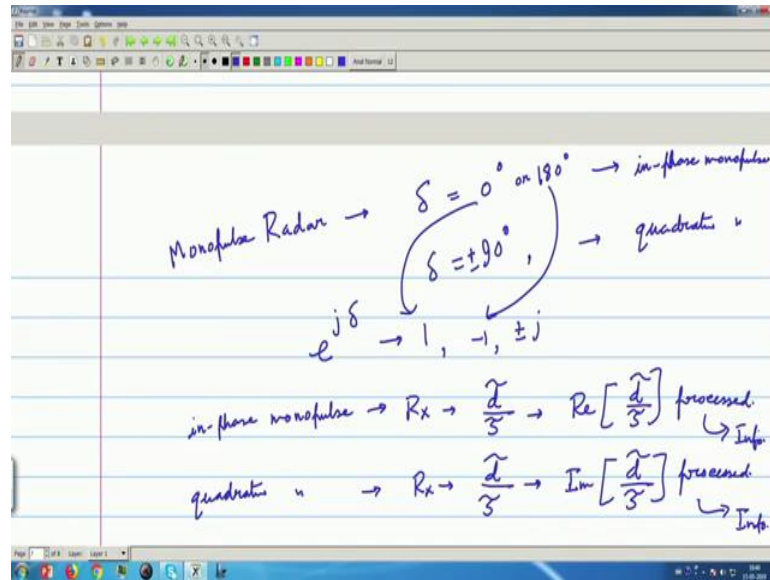 File Edit View Page Tools Options Help
Arial Normal 12
Monopulse Radar → δ = 0° or 180° → in-phase monopulse
δ = ±90°, → quadrature "
e^{jδ} → 1, -1, ±j
in-phase monopulse → Rx → d̃/s̃ → Re[d̃/s̃] processed. ↳ Info.
quadrature " → Rx → d̃/s̃ → Im[d̃/s̃] processed. ↳ Info.
Page 7 of 8 Layer: Layer 1